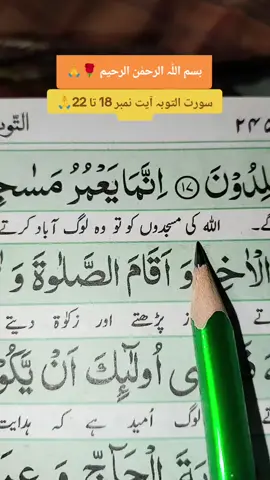 بسم اللہ الرحمٰن الرحیم 🌹🙏
سورت التوبہ آیت نمبر 18 تا 22🙏
۲۴۵
التوب
لِدُوْنَ ۝۱۷ اِنَّمَا يَعْمُرُ مَسٰجِ
اللہ کی مسجدوں کو تو وہ لوگ آباد کرتے
الْاٰخِ وَ اَقَامَ الصَّلٰوةَ وَ
پڑھتے اور زکوٰۃ دیتے
اُولٰٓئِكَ اَنْ يَّكُوْ
لوگ اُمید ہے کہ ہدایت
الْحَآجِّ وَ